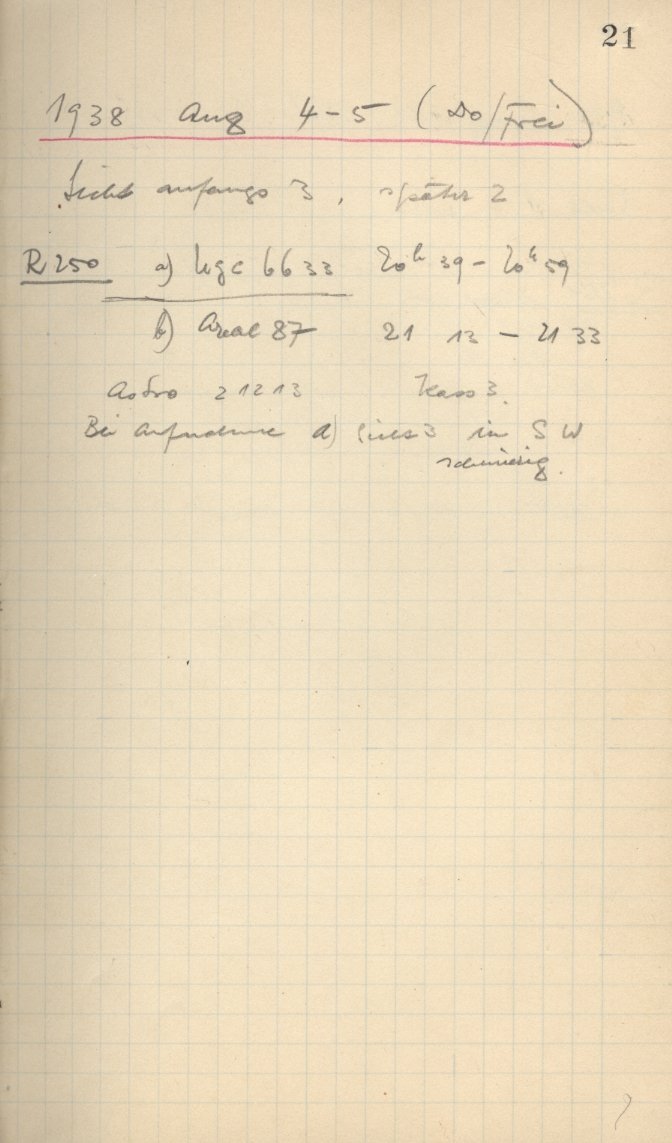 21
1938 Aug 4-5 (Do/Frei)
Sicht anfangs 3, später 2
R 250 a) NGC 6633 20h 39 - 20h 59
b) Areal 87 21 13 - 21 33
Astro 21213 3.
Bei Aufnahme a) in SW
schwierig.